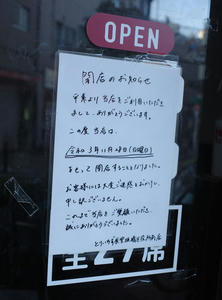 OPEN
閉店のお知らせ
平素より当店をご利用いただき
まして、ありがとうございます。
この度 当店は、
令和3年11月28日(日曜日)
をもって閉店することとなりました。
お客様には大変ご迷惑をおかけし
申し訳ございません。
これまで当店をご愛顧いただき
誠にありがとうございました。
全27席